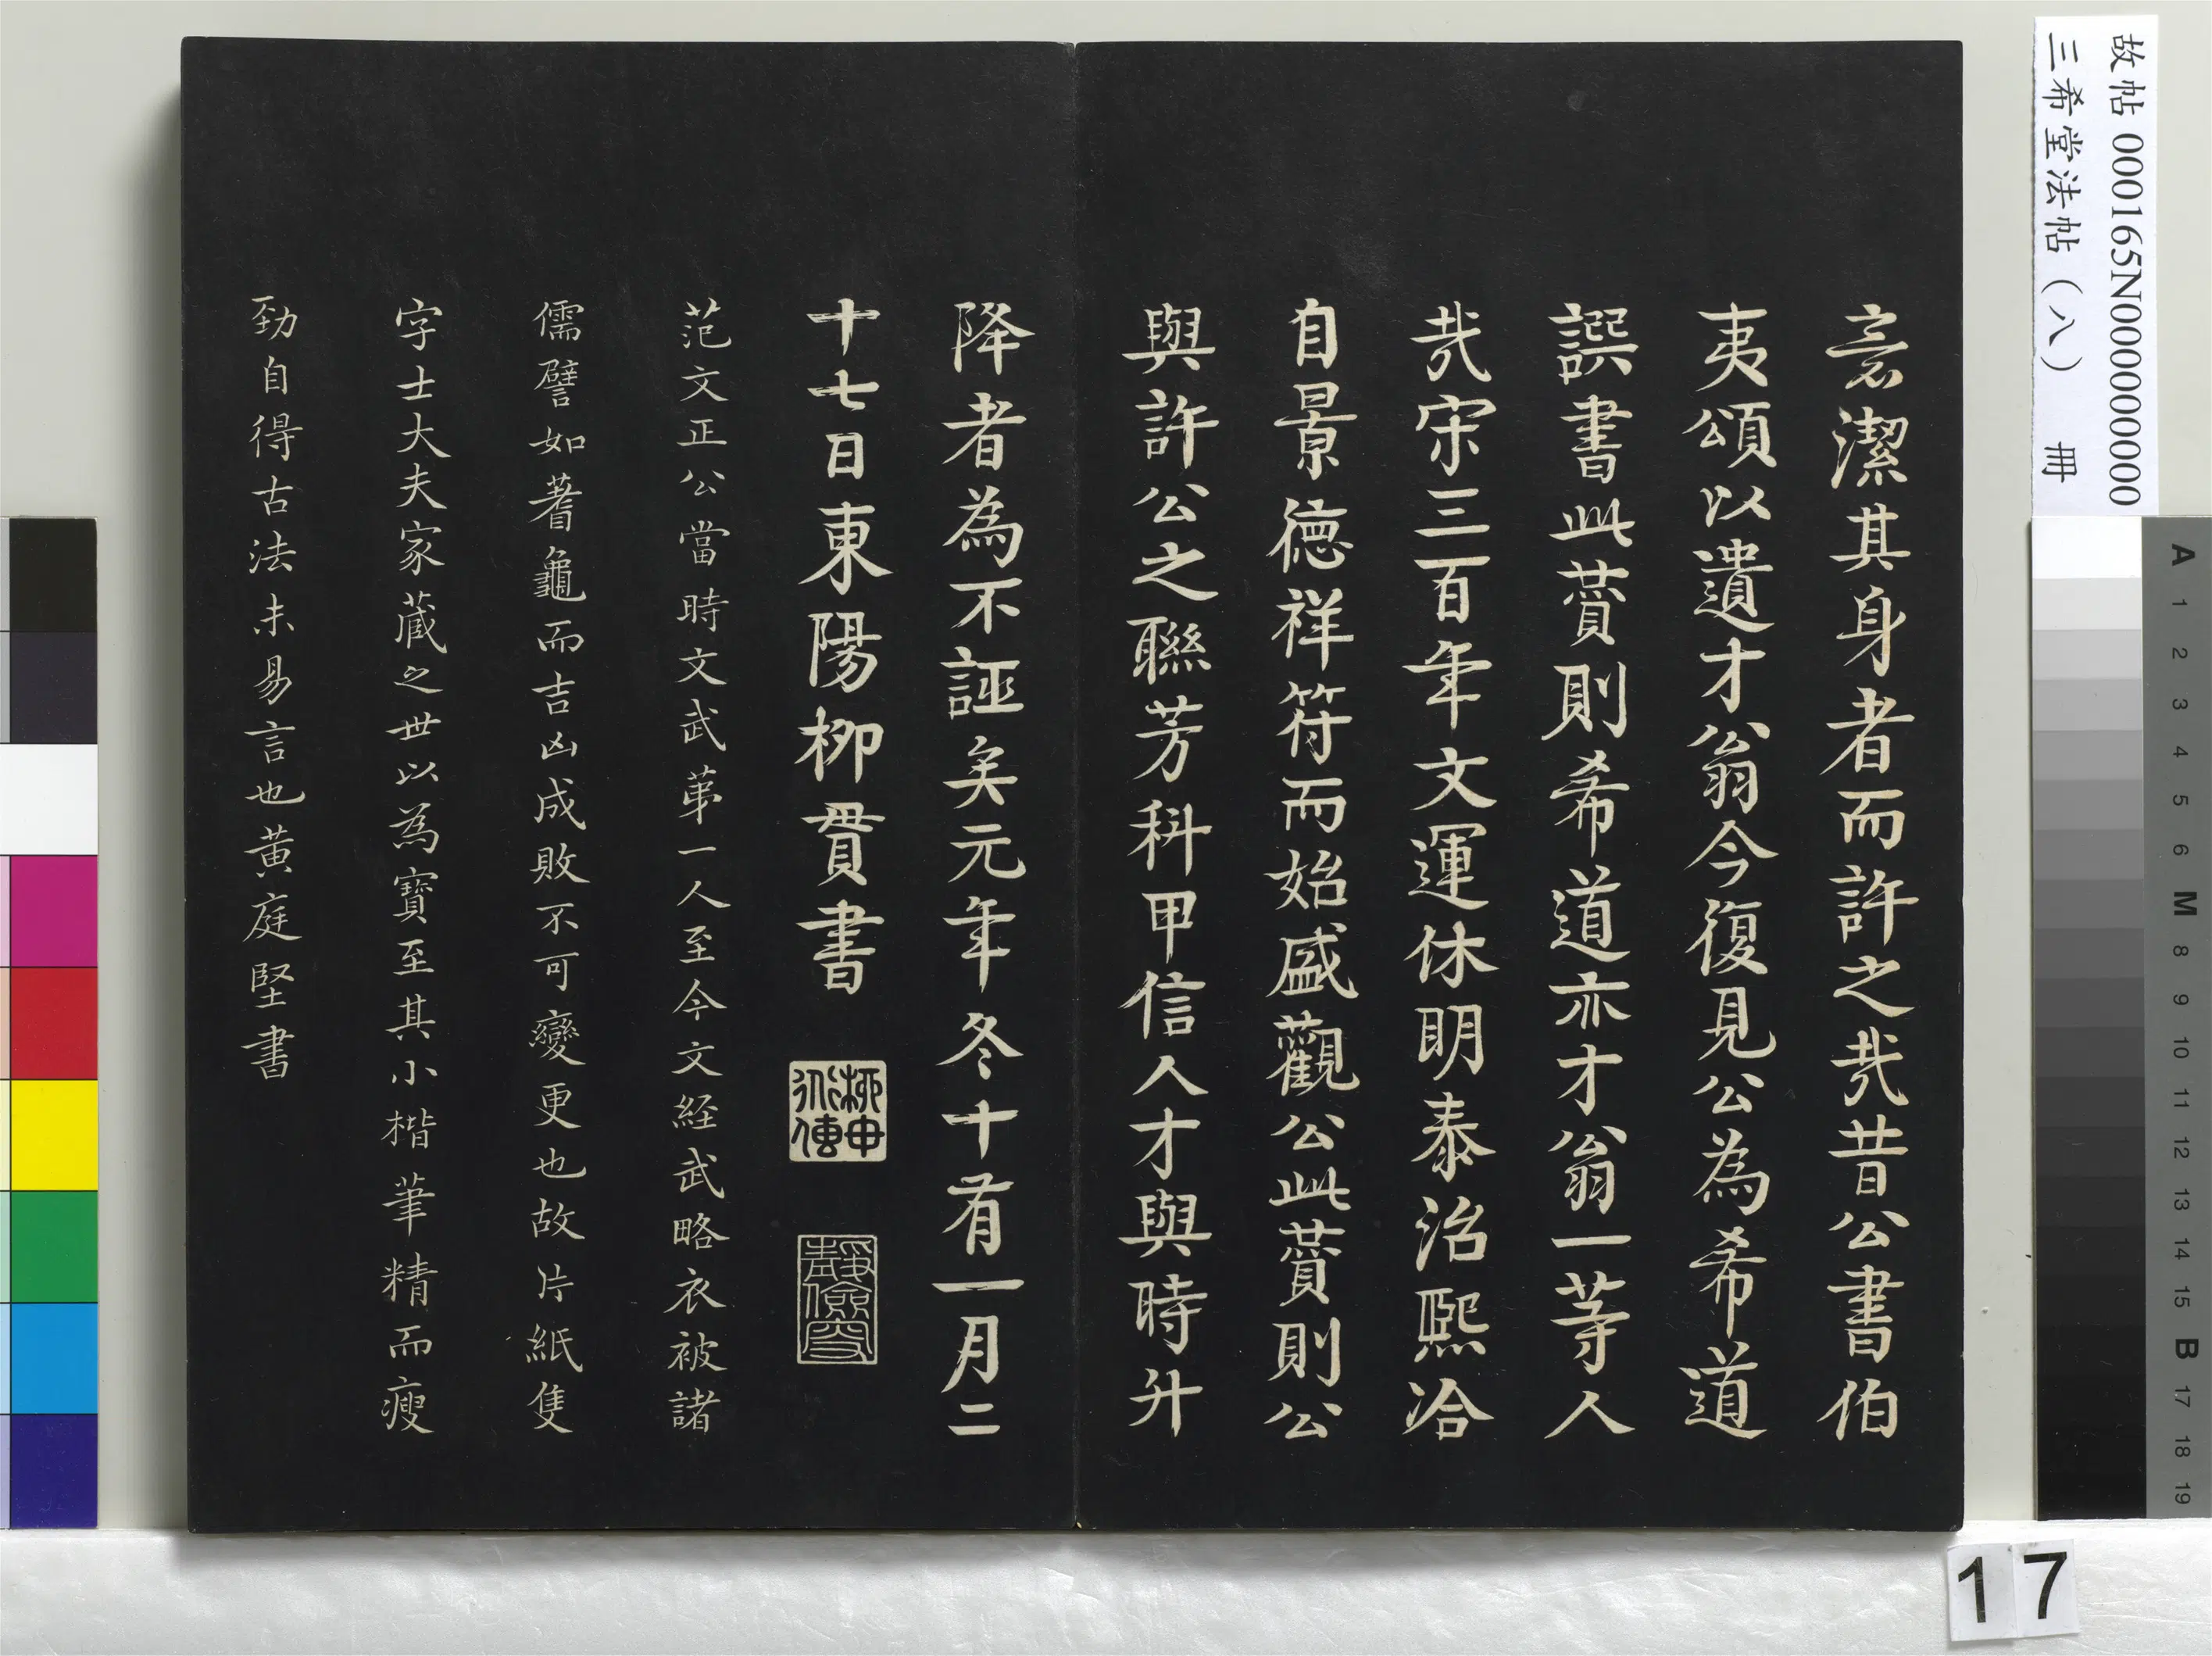 意潔其身者而許之哉昔公書伯
夷頌以遺才翁今復見公為希道
譔書此贊則希道亦才翁一等人
哉宋三百年文運休明泰治熙洽
自景德祥符而始盛觀公此贊則公
與許公之聯芳科甲信人才與時升
降者為不誣矣元年冬十有一月二
十七日東陽柳貫書
柳申
靜儉
范文正公當時文武第一人至今文経武略衣被諸
儒譬如蓍龜而吉凶成敗不可變更也故片紙隻
字士大夫家藏之世以為寶至其小楷筆精而瘦
勁自得古法未易言也黃庭堅書
故帖 000165N000000000
三希堂法帖（八） 冊
A 1 2 3 4 5 6 M 8 9 10 11 12 13 14 15 B 17 18 19
17